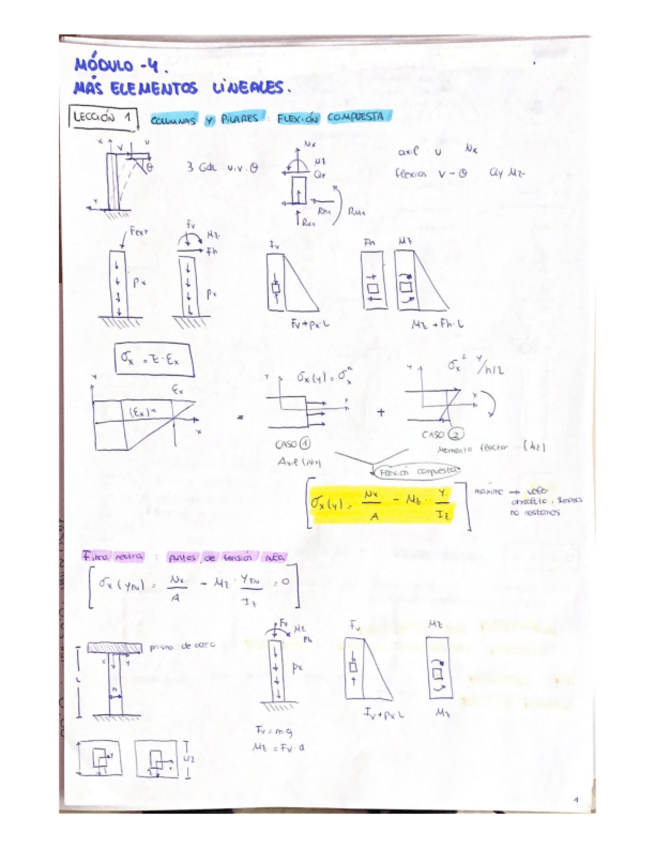 MÓDULO -4.
MÁS ELEMENTOS LINEALES.
LECCIÓN 1 COLUMNAS Y PILARES: FLEXIÓN COMPUESTA
x v u
θ
3 Gdl u.v.θ
Nx
Mz
Qy
axil u Nx
flexion v-θ Qy Mz
Fext
px
Fv
Mz
Fh
px
Fv+px·L
Fh Mz
Mz+Fh·L
σx = E·εx
y
εx
(εx)ⁿ
x
=
σx(y)=σxⁿ
CASO 1
Axil (Nx)
+
σx² y/h/2
CASO 2
Momento flector (Mz)
Flexión compuesta
σx(y) = Nx/A - Mz · y/Iz
máximo → valor
absoluto,
no restamos
Fibra neutra: puntos de tensión nula
σx(yFN) = Nx/A - Mz · yFN/Iz = 0
L
Fv Mz
Fh
px
Fv
Fv+px·L
Mz
Mz
Fv=mg
Mz=Fv·d
1